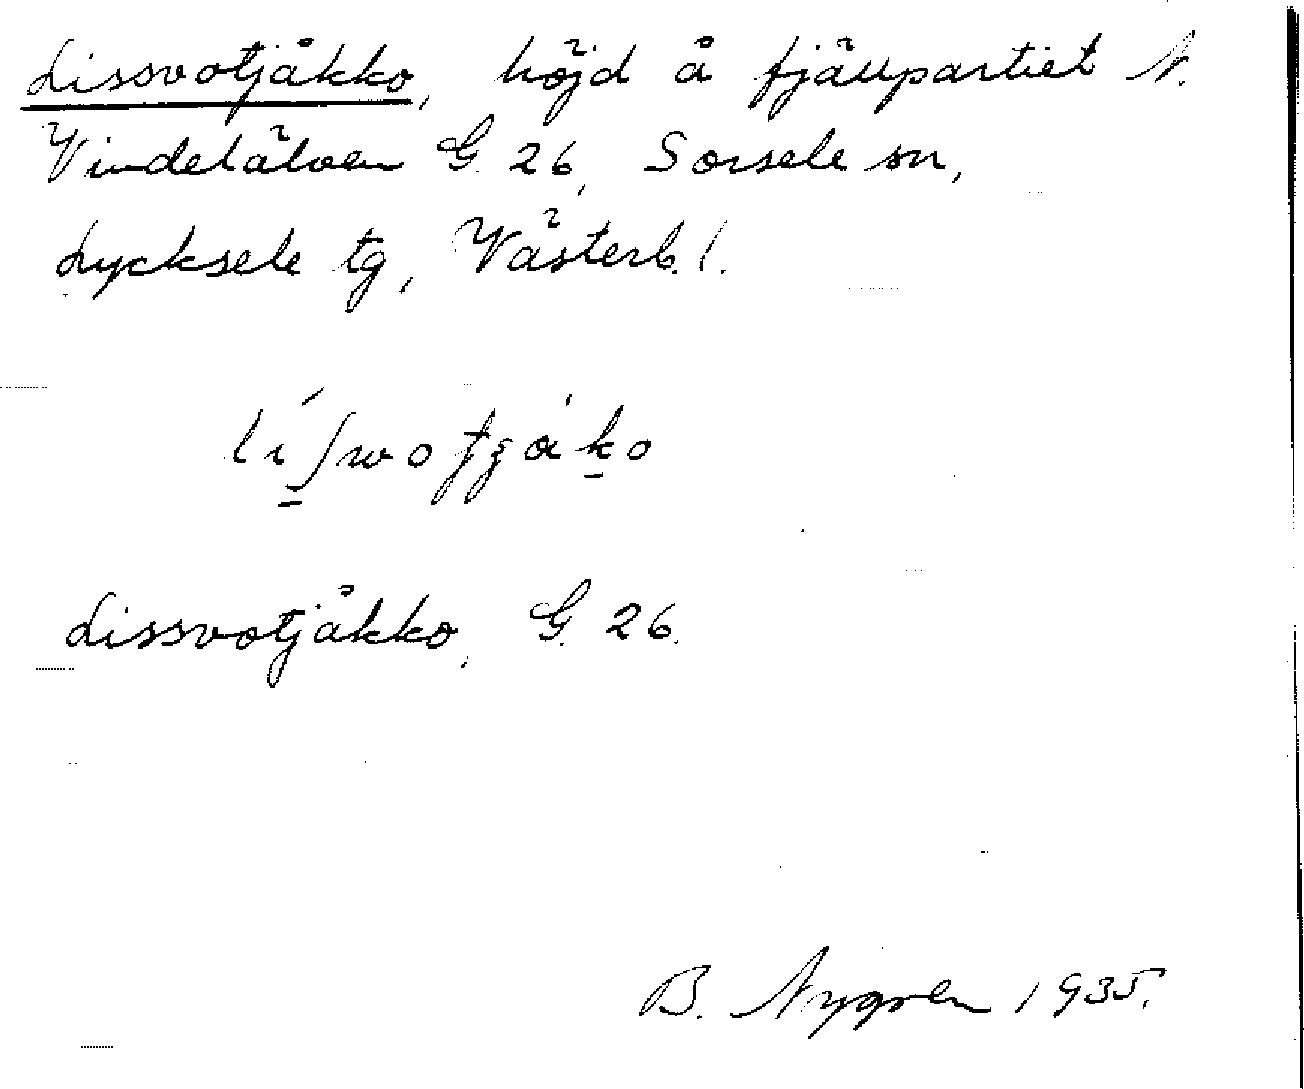 Lissvotjåkko, höjd å fjällpartiet N.
Vindelälven G. 26, Sorsele sn,
Lycksele tg, Västerb. l.
Lissvotjåkko, G. 26.
B. Nygren 1935.